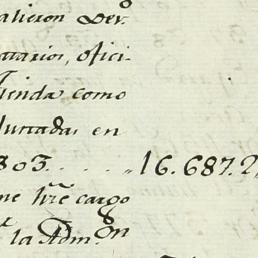 alieron Der.
ttarios, ofici-
ienda como
luntadas en
803. . . . . „ 16.687.2
me hñe cargo
la Adm.on